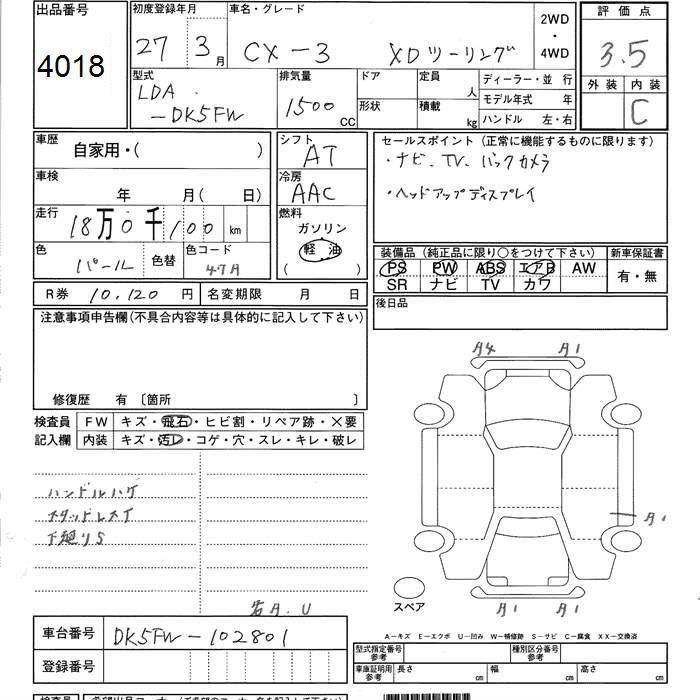 出品番号
4018
初度登録年月
27 3月
車名・グレード
CX-3 XDツーリング
2WD
・
4WD
評価点
3.5
外装 内装
C
型式
LDA
-DK5FW
排気量
1500
CC
ドア
形状
定員
人
積載
kg
ディーラー・並 行
モデル年式 年
ハンドル 左・右
車歴
自家用・( )
車検
年 月( 日)
走行
18万0千100 km
色
パール
色替
色コード
47A
シフト
AT
冷房
AAC
燃料
ガソリン
軽 油
( )
セールスポイント (正常に機能するものに限ります)
・ナビ、TV、バックカメラ
・ヘッドアップディスプレイ
装備品 (純正品に限り○をつけて下さい)
PS PW ABS エアB AW
SR ナビ TV カワ
新車保証書
有・無
R券 10,120 円
名変期限 月 日
後日品
注意事項申告欄(不具合内容等は具体的に記入して下さい)
修復歴 有 〔箇所 〕
検査員
記入欄
FW キズ・飛石・ヒビ割・リペア跡・×要
内装 キズ・汚レ・コゲ・穴・スレ・キレ・破レ
ハンドルハゲ
スタッドレスT
下廻りS
A4 A1
A1
A1 A1
スペア
A.U
A―キズ E―エクボ U―凹み W―補修跡 S―サビ C―腐食 XX―交換済
車台番号
DK5FW-102801
登録番号
型式指定番号
参考
種別区分番号
参考
車庫証明用
参考
長さ cm
幅 cm
高さ cm